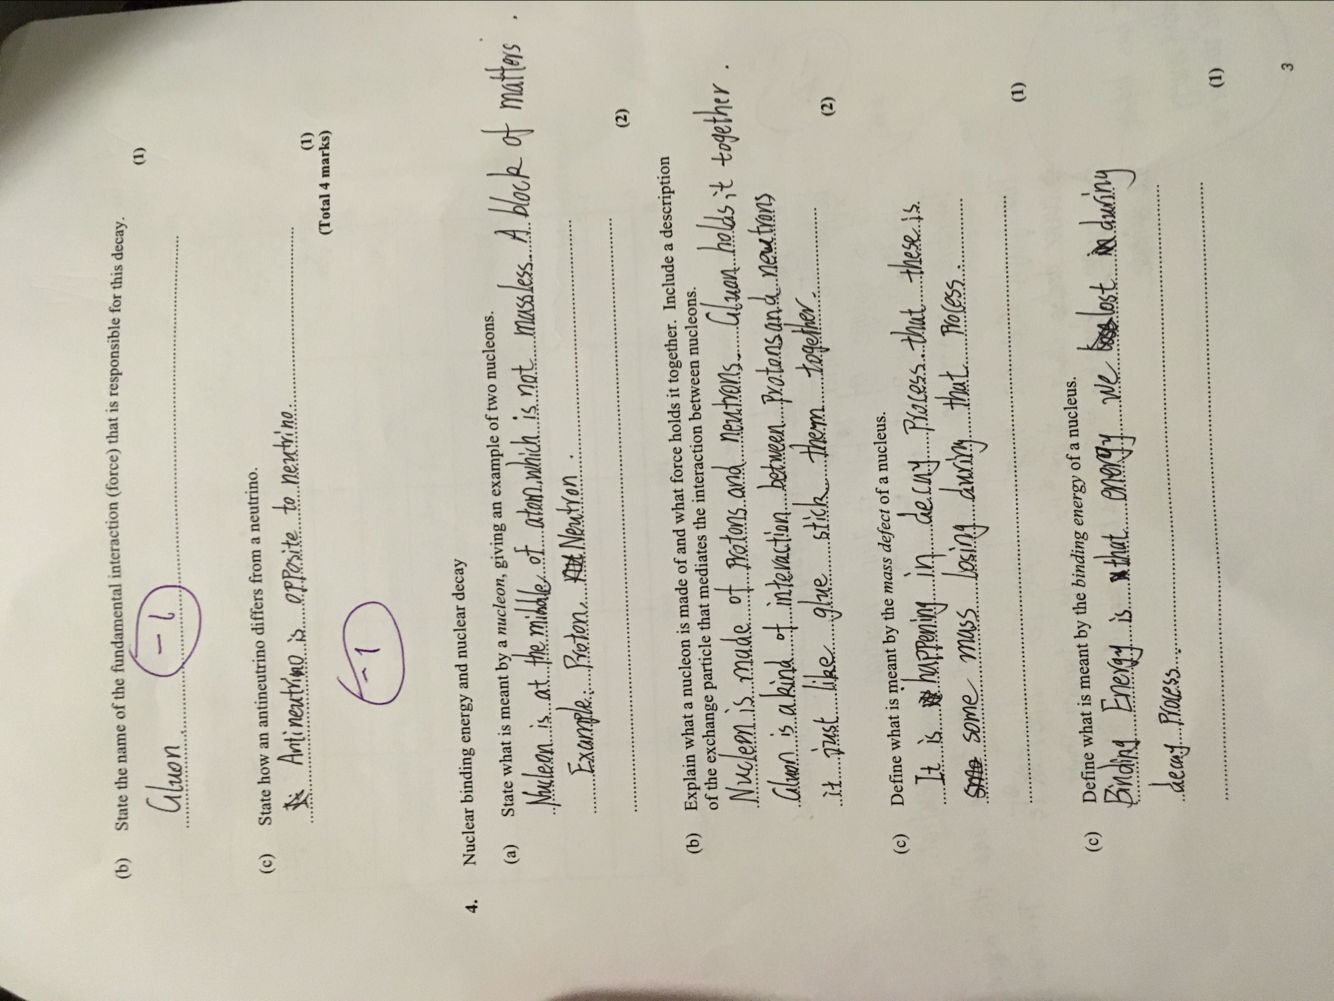 (b) State the name of the fundamental interaction (force) that is responsible for this decay.
(1)
Gluon
-1
(c) State how an antineutrino differs from a neutrino.
Antineutrino is opposite to neutrino.
(1)
(Total 4 marks)
-1
4. Nuclear binding energy and nuclear decay
(a) State what is meant by a nucleon, giving an example of two nucleons.
Nucleon is at the middle of atom which is not massless. A block of matters.
Example: Proton, Neutron.
(2)
(b) Explain what a nucleon is made of and what force holds it together. Include a description
of the exchange particle that mediates the interaction between nucleons.
Nucleon is made of protons and neutrons. Gluon holds it together.
Gluon is a kind of interaction between protons and neutrons
it just like glue stick them together.
(2)
(c) Define what is meant by the mass defect of a nucleus.
It is happening in decay Process that these is
some mass losing during that Process.
(1)
(c) Define what is meant by the binding energy of a nucleus.
Binding Energy is that energy we lost during
decay Process.
(1)
3